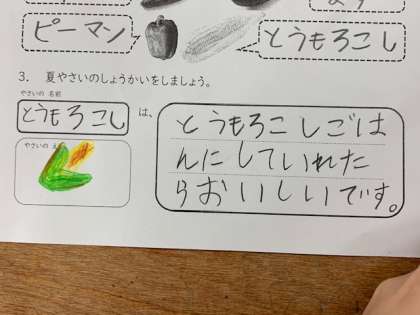 ピーマン
とうもろこし
3. 夏やさいのしょうかいをしましょう。
やさいの 名前
とうもろこし
は、
とうもろこしごは
んにしていれた
らおいしいです。
やさいの え